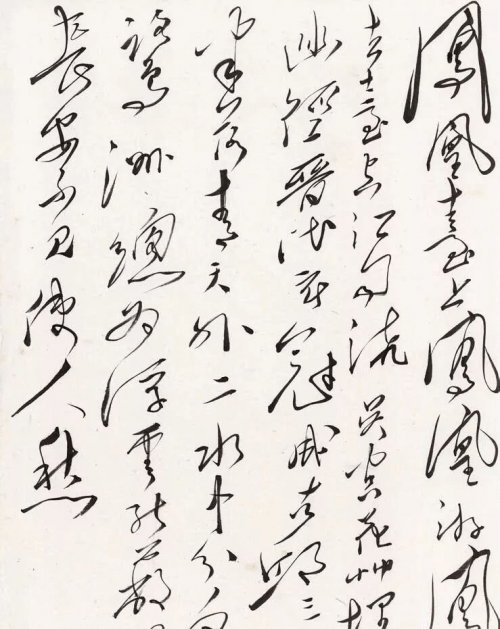 鳳凰臺上鳳凰游鳳
去臺空江自流吳宮花艸埋
幽徑晉代衣冠成古邱三
半落青天外二水中分白
鷺洲總為浮雲能蔽
長安不見使人愁